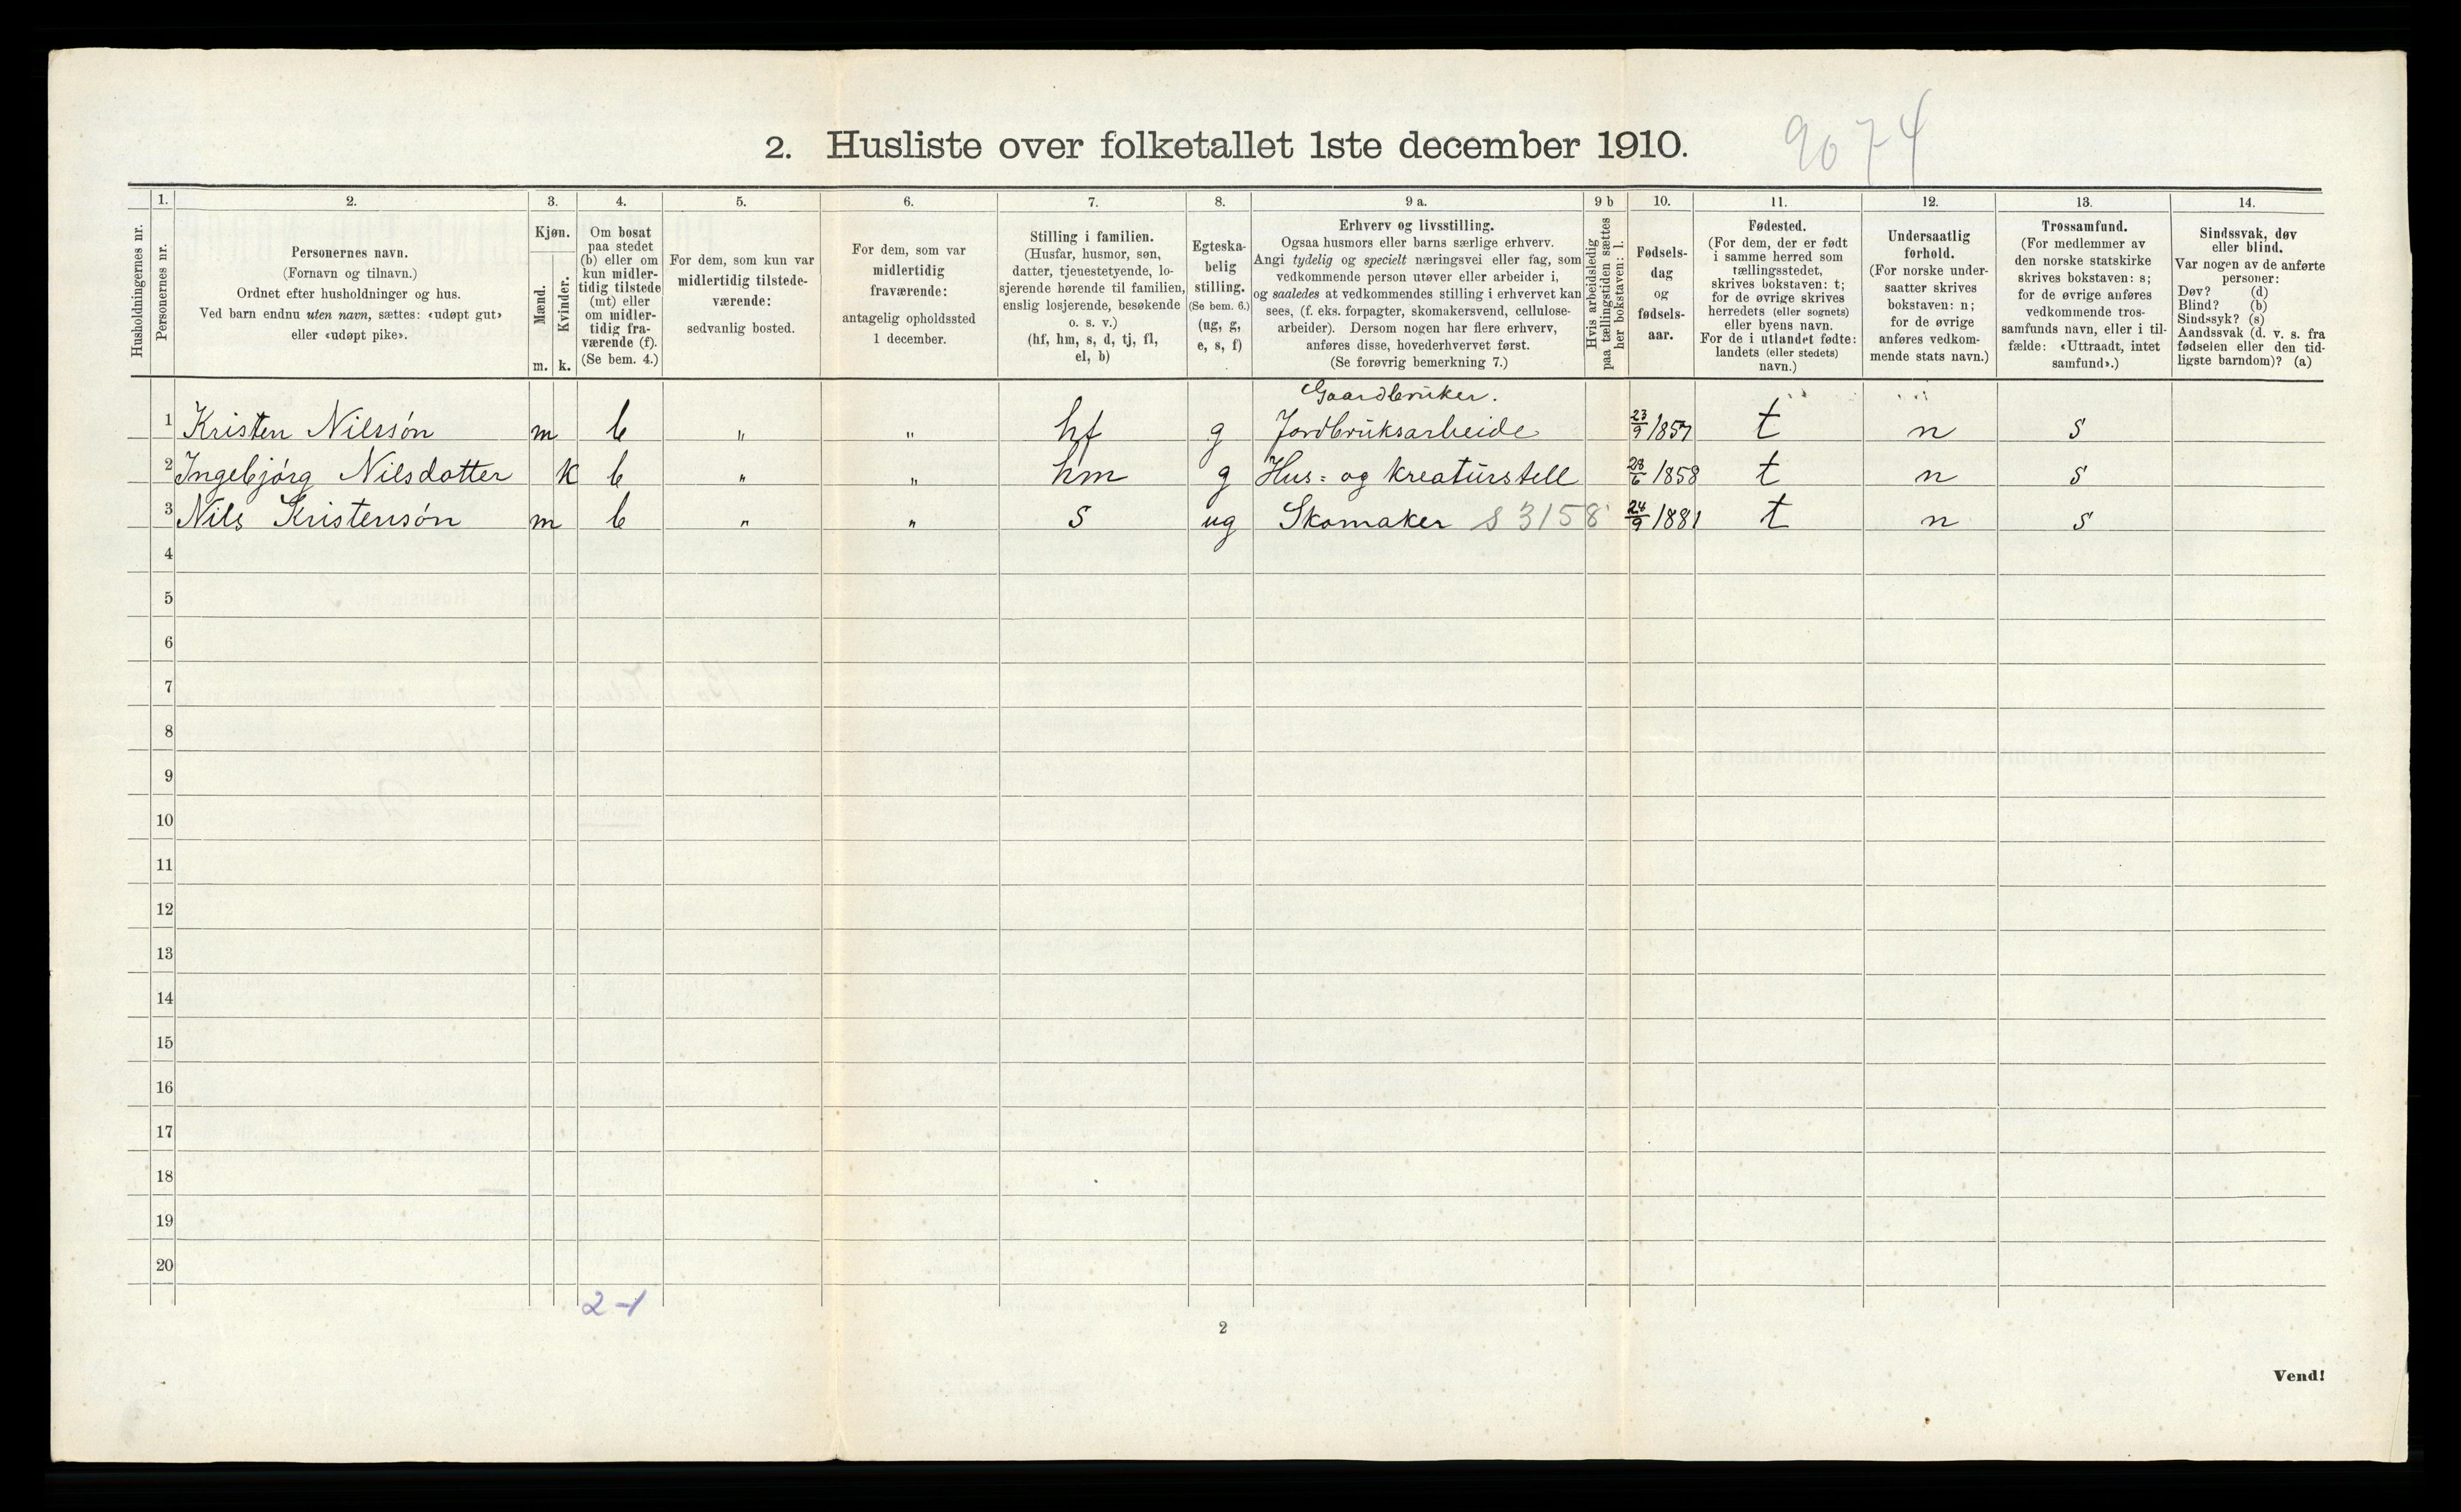 9074
2. Husliste over folketallet 1ste december 1910.
Husholdningernes nr.
1.
Personernes nr.
2.
Personernes navn.
(Fornavn og tilnavn.)
Ordnet efter husholdninger og hus.
Ved barn endnu uten navn, sættes: «udøpt gut»
eller «udøpt pike».
3.
Kjøn.
Mænd.
Kvinder.
m. k.
4.
Om bosat
paa stedet
(b) eller om
kun midler-
tidig tilstede
(mt) eller
om midler-
tidig fra-
værende (f).
(Se bem. 4.)
5.
For dem, som kun var
midlertidig tilstede-
værende:
sedvanlig bosted.
6.
For dem, som var
midlertidig
fraværende:
antagelig opholdssted
1 december.
7.
Stilling i familien.
(Husfar, husmor, søn,
datter, tjenestetyende, lo-
sjerende hørende til familien,
enslig losjerende, besøkende
o. s. v.)
(hf, hm, s, d, tj, fl,
el, b)
8.
Egteska-
belig
stilling.
(Se bem. 6.)
(ug, g,
e, s, f)
9 a.
Erhverv og livsstilling.
Ogsaa husmors eller barns særlige erhverv.
Angi tydelig og specielt næringsvei eller fag, som
vedkommende person utøver eller arbeider i,
og saaledes at vedkommendes stilling i erhvervet kan
sees, (f. eks. forpagter, skomakersvend, cellulose-
arbeider). Dersom nogen har flere erhverv,
anføres disse, hovederhvervet først.
(Se forøvrig bemerkning 7.)
9 b
Hvis arbeidsledig
paa tællingstiden sættes
her bokstaven: l.
10.
Fødsels-
dag
og
fødsels-
aar.
11.
Fødested.
(For dem, der er født
i samme herred som
tællingsstedet,
skrives bokstaven: t;
for de øvrige skrives
herredets (eller sognets)
eller byens navn.
For de i utlandet fødte:
landets (eller stedets)
navn.)
12.
Undersaatlig
forhold.
(For norske under-
saatter skrives
bokstaven: n;
for de øvrige
anføres vedkom-
mende stats navn.)
13.
Trossamfund.
(For medlemmer av
den norske statskirke
skrives bokstaven: s;
for de øvrige anføres
vedkommende tros-
samfunds navn, eller i til-
fælde: «Uttraadt, intet
samfund».)
14.
Sindssvak, døv
eller blind.
Var nogen av de anførte
personer:
Døv? (d)
Blind? (b)
Sindssyk? (s)
Aandssvak (d. v. s. fra
fødselen eller den tid-
ligste barndom)? (a)
Gaardbruker.
1 Kristen Nilssón m b " " hf g Jordbruksarbeide 23/9 1857 t n s
2 Ingebjórg Nilsdatter k b " " hm g Hus= og kreaturstell 28/6 1858 t n s
3 Nils Kristensón m b " " s ug Skomaker S 3158 24/9 1881 t n s
4
5
6
7
8
9
10
11
12
13
14
15
16
17
18
19
20
2-1
2
Vend!